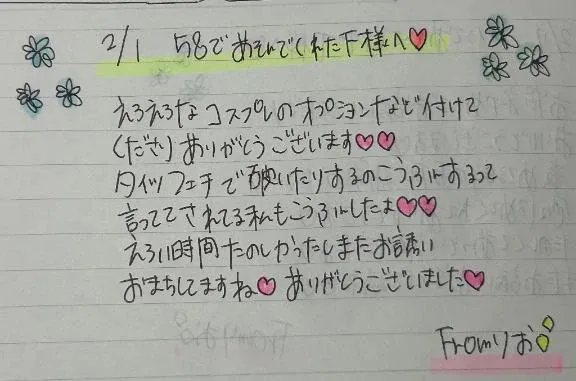 2/1 58であそんでくれたF様へ♡
えろえろなコスプレのオプションなど付けて
くださりありがとうございます♡♡
タイツフェチで破いたりするのこうふんするって
言っててされてる私もこうふんしたよ♡♡
えろい時間たのしかったしまたお誘い
おまちしてますね♡ありがとうございました♡
Fromりお